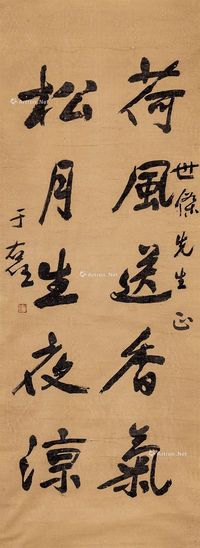 荷風送香氣
世傑先生正
松月生夜涼
于右任